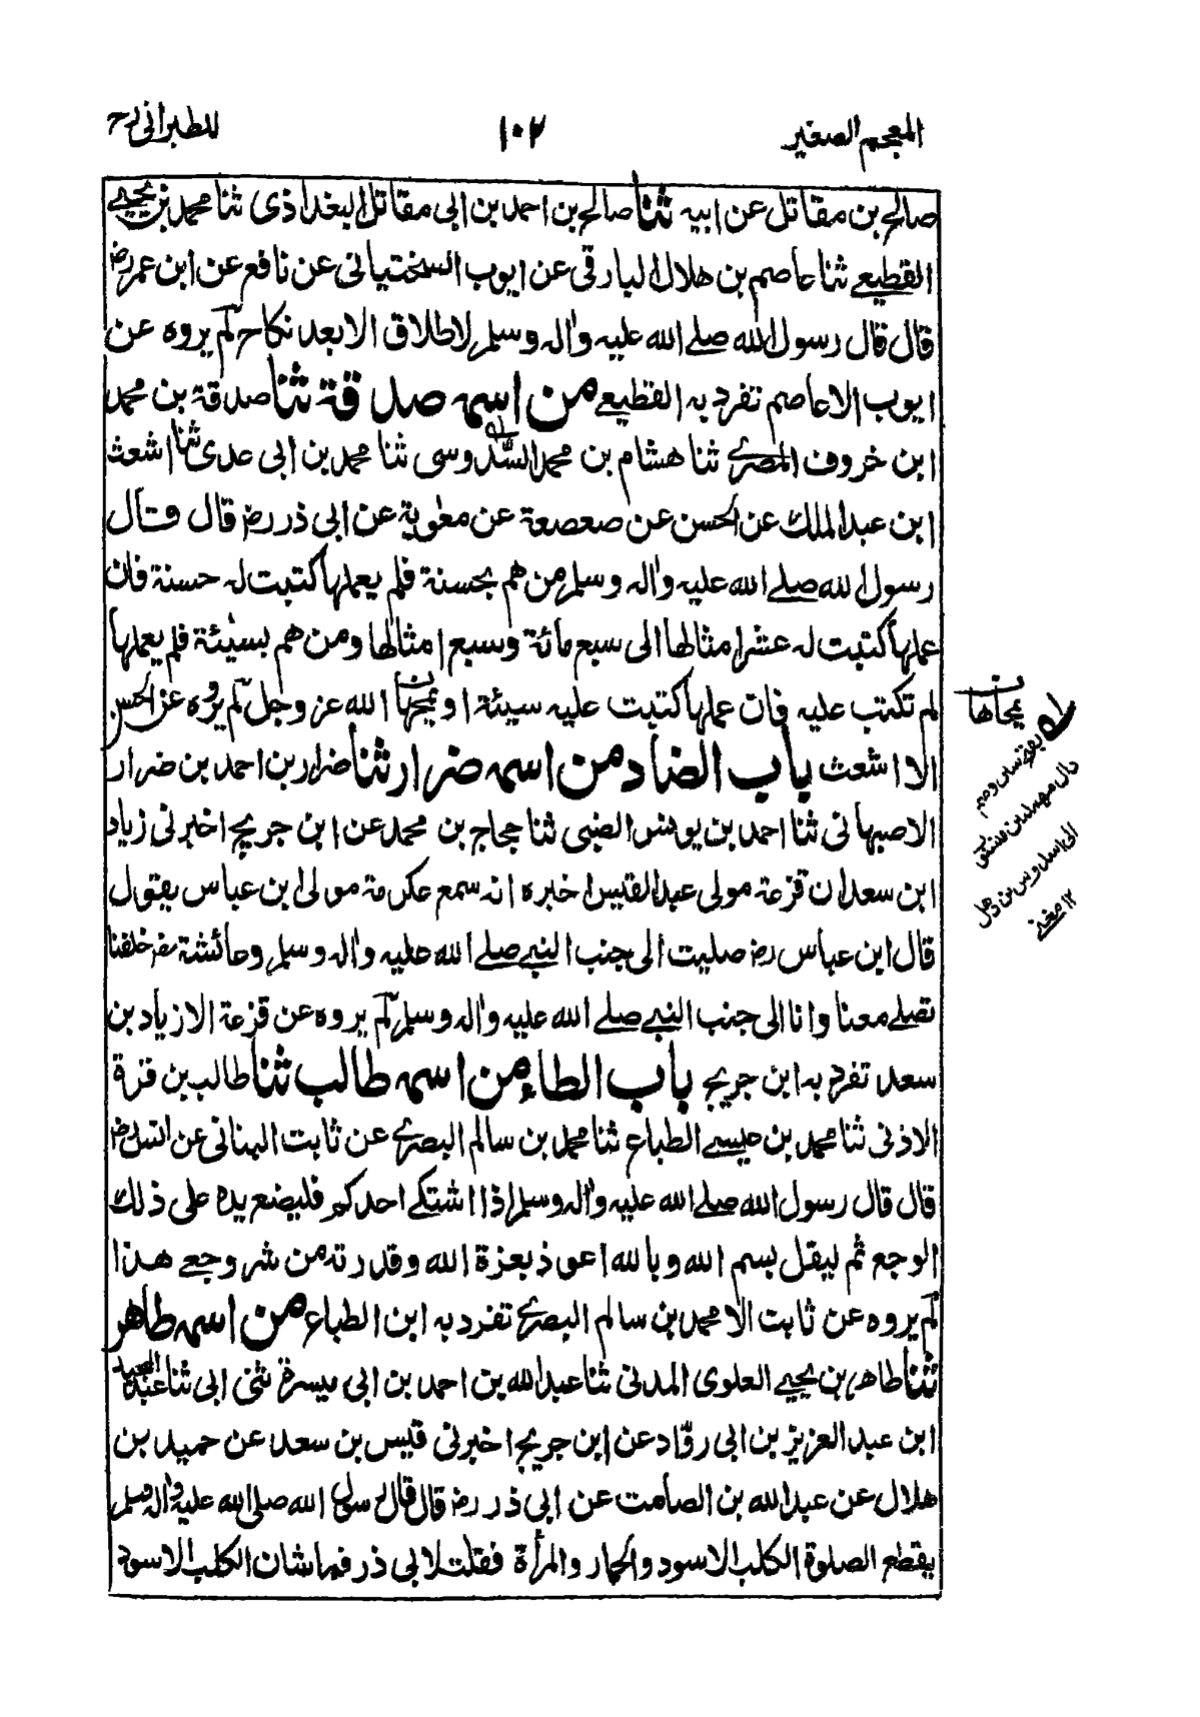 المعجم الصغير
١٠٢
للطبرانی رح
صالح بن مقاتل عن ابیه ثنا صالح بن احمد بن ابی مقاتل البغداذی ثنا محمد بن یحیے
القطیعے ثنا عاصم بن هلال البارقی عن ایوب السختیانی عن نافع عن ابن عمر رض
قال قال رسول الله صلے الله علیه واٰله وسلم لا طلاق الا بعد نکاح لم یروه عن
ایوب الا عاصم تفرد به القطیعے من اسمه صدقة ثنا صدقة بن محمد
ابن خروف المصرے ثنا هشام بن محمد السَّدوسی ثنا محمد بن ابی عدی ثنا اشعث
ابن عبد الملک عن الحسن عن صعصعة عن معٰویة عن ابی ذر رض قال قال
رسول الله صلے الله علیه واٰله وسلم من هم بحسنة فلم یعملها کتبت له حسنة فان
عملها کتبت له عشر امثالها الی سبع مائة وسبع امثالها ومن هم بسیئة فلم یعملها
لم تکتب علیه فان عملها کتبت علیه سیئة او یمحها الله عز وجل لم یروه عن الحسن
الا اشعث باب الضاد من اسمه ضرار ثنا ضرار بن احمد بن ضرار
الاصبهانی ثنا احمد بن یونس الضبی ثنا حجاج بن محمد عن ابن جریج اخبرنی زیاد
ابن سعد ان قزعة مولی عبد القیس اخبره انه سمع عکرمة مولی ابن عباس یقول
قال ابن عباس رض صلیت الی جنب النبے صلے الله علیه واٰله وسلم وعائشة رض خلفنا
تصلے معنا وانا الی جنب النبے صلے الله علیه واٰله وسلم لم یروه عن قزعة الا زیاد بن
سعد تفرد به ابن جریج باب الطاء من اسمه طالب ثنا طالب بن قرة
الاذنی ثنا محمد بن عیسے الطباع ثنا محمد بن سالم البصرے عن ثابت البنانی عن انس رض
قال قال رسول الله صلے الله علیه واٰله وسلم اذا اشتکے احدکم فلیضع یده علی ذلک
الوجع ثم لیقل بسم الله وبالله اعوذ بعزة الله وقدرته من شر وجعے هذا
لم یروه عن ثابت الا محمد بن سالم البصرے تفرد به ابن الطباع من اسمه طاهر
ثنا طاهر بن یحیے العلوی المدنی ثنا عبد الله بن احمد بن ابی میسرة ثنی ابی ثنا عبد المجید
ابن عبد العزیز بن ابی روّاد عن ابن جریج اخبرنی قیس بن سعد عن حمید بن
هلال عن عبد الله بن الصامت عن ابی ذر رض قال قال رسول الله صلی الله علیه واٰله وسلم
یقطع الصلوة الکلب الاسود والحمار والمرأة فقلت لابی ذر فما شان الکلب الاسود
یمحاها
دال مهملة
الی سدوس بن
١٢ مغنے